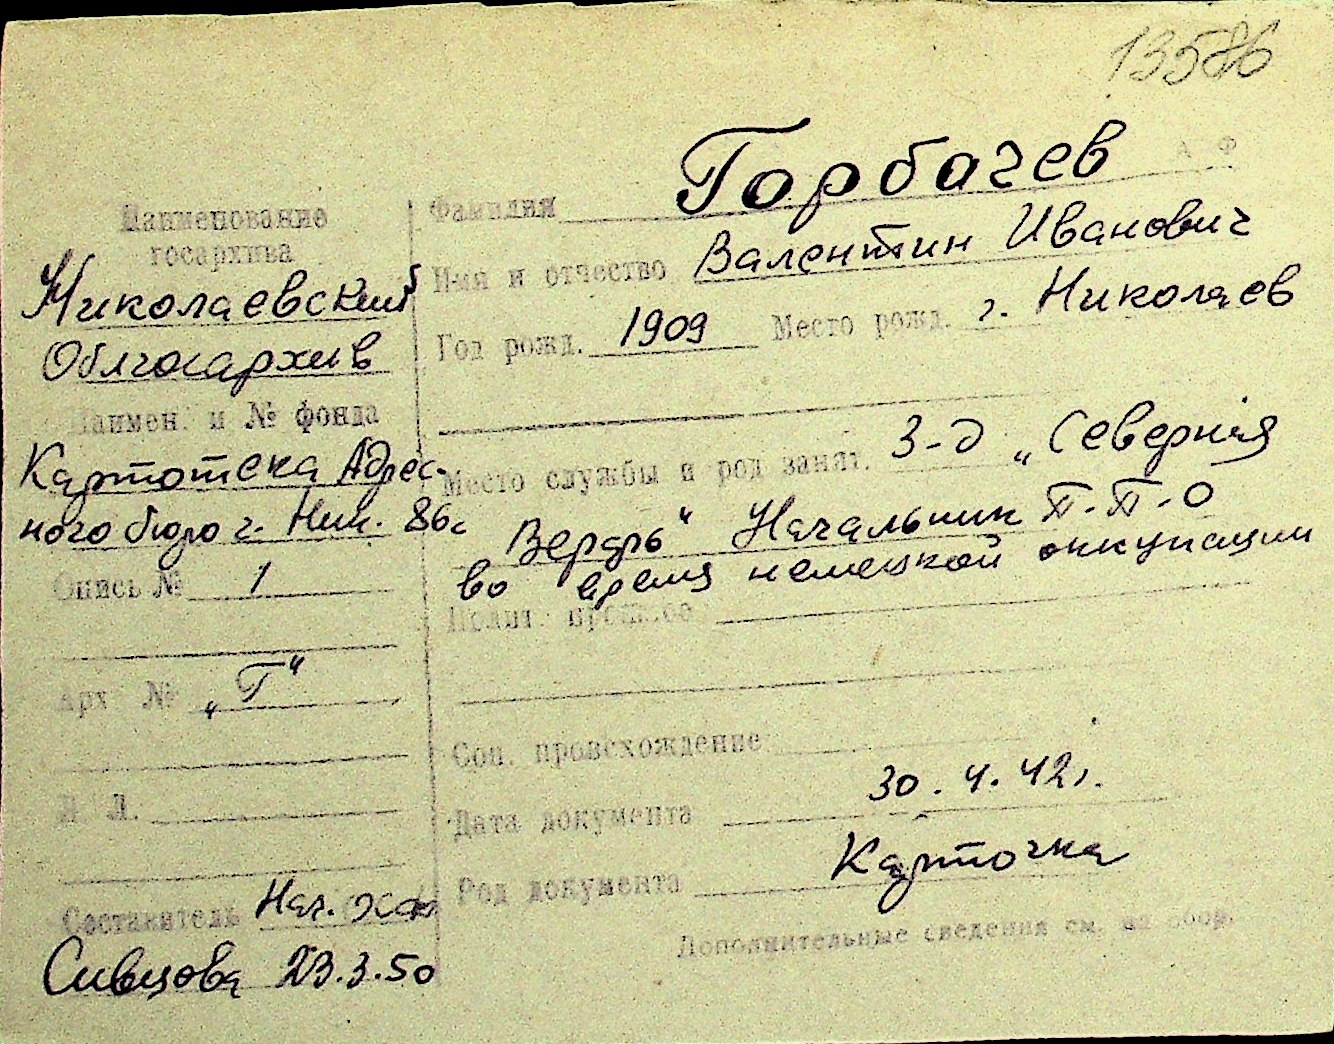 13586
А Ф
Фамилия Горбачев
Имя и отчество Валентин Иванович
Год рожд. 1909 Место рожд. г. Николаев
Место службы и род занят. З-д „Северная
Верфь“ Начальник П.-П.-О
во время немецкой оккупации
Полит. прошлое
Соц. происхождение
Дата документа 30.4.42г.
Род документа Карточка
Дополнительные сведения см. на обор.
Наименование
госархива
Николаевский
Облгосархив
Наимен. и № фонда
Картотека Адрес-
ного бюро г. Ник. 86с
Опись № 1
Арх № „Г“
Л. Л.
Составитель Нач.
Сивцова 23.3.50